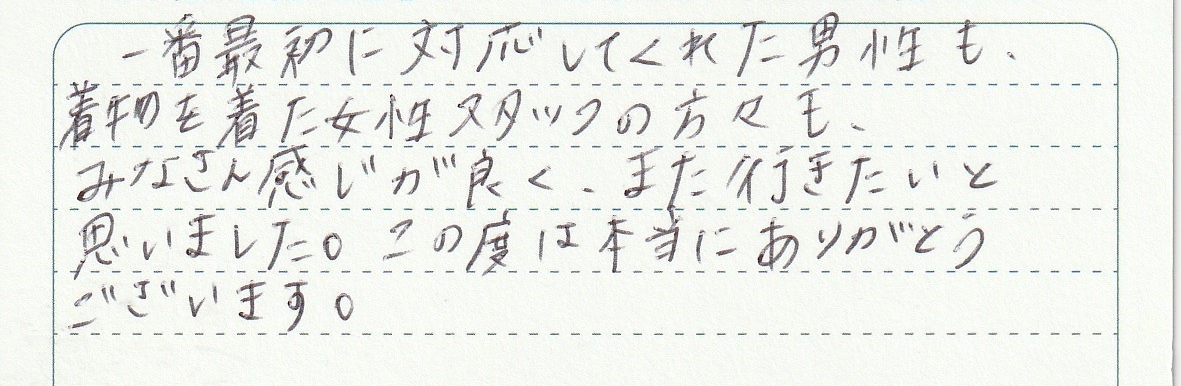 一番最初に対応してくれた男性も、
着物を着た女性スタッフの方々も、
みなさん感じが良く、また行きたいと
思いました。この度は本当にありがとう
ございます。